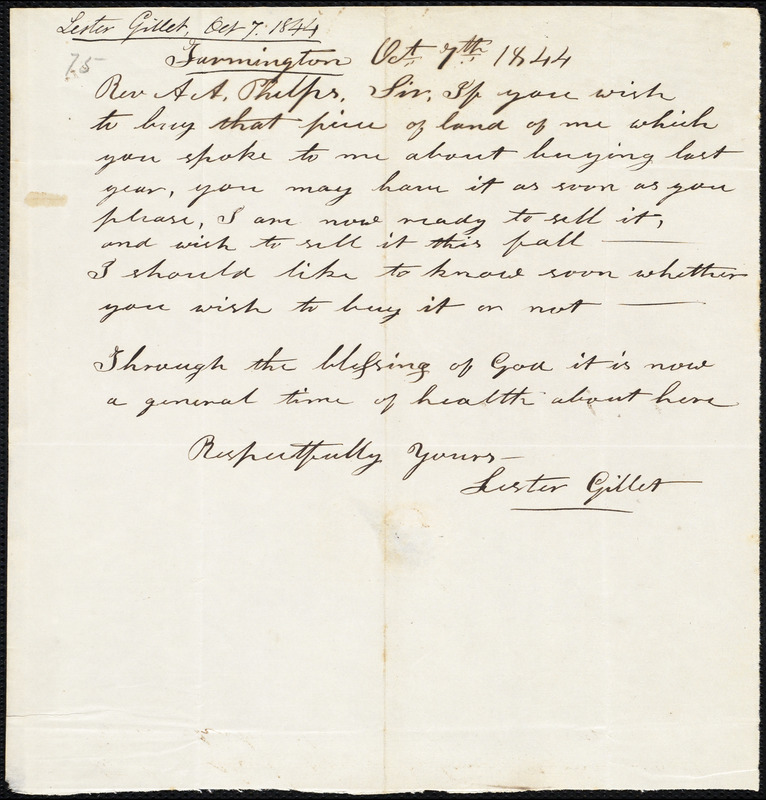 Lester Gillet, Oct 7. 1844
75
Farmington Oct. 7th 1844
Rev A A. Phelps, Sir, If you wish
to buy that piece of land of me which
you spoke to me about buying last
year, you may have it as soon as you
please, I am now ready to sell it,
and wish to sell it this fall —
I should like to know soon whether
you wish to buy it or not —
Through the blessing of God it is now
a general time of health about here
Respectfully Yours —
Lester Gillet